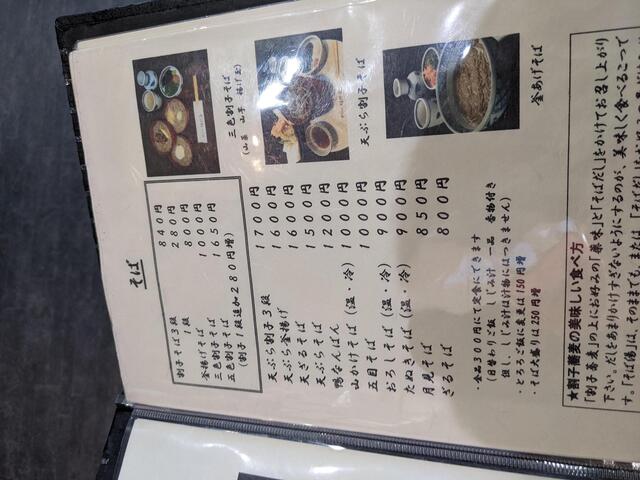 そば
割子そば3段 840円
1段 280円
釜揚げそば 800円
三色割子そば 1000円
五色割子そば 1650円
(割子1段追加280円増)
天ぷら割子3段 1700円
天ぷら釜揚げ 1600円
天ざるそば 1600円
天ぷらそば 1500円
鴨なんばん 1200円
山かけそば(温・冷) 1000円
五目そば 1000円
おろしそば(温・冷) 900円
たぬきそば(温・冷) 900円
月見そば 850円
ざるそば 800円
三色割子そば
(山菜 山芋 揚げ玉)
天ぷら割子そば
釜あげそば
・全品300円にて定食にできます
(日替わりご飯 しじみ汁 一品 香物付き
但し、しじみ汁は汁物にはつきません)
・とろろご飯に変更は150円増
・そば大盛りは250円増
★割子蕎麦の美味しい食べ方
「割子蕎麦」の上にお好みの「薬味」と「そばだし」をかけてお召し上がり
下さい。だしをあまりかけすぎないようにするのが、美味しく食べるこつで
す。「そば湯」は、そのままでも、または